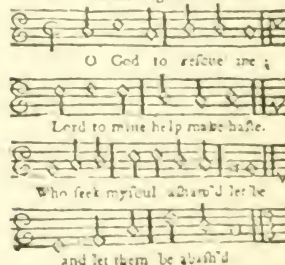 O God to reſcue me ;
Lord to mine help make haſte.
Who ſeek my ſoul aſham'd let be
and let them be abaſh'd